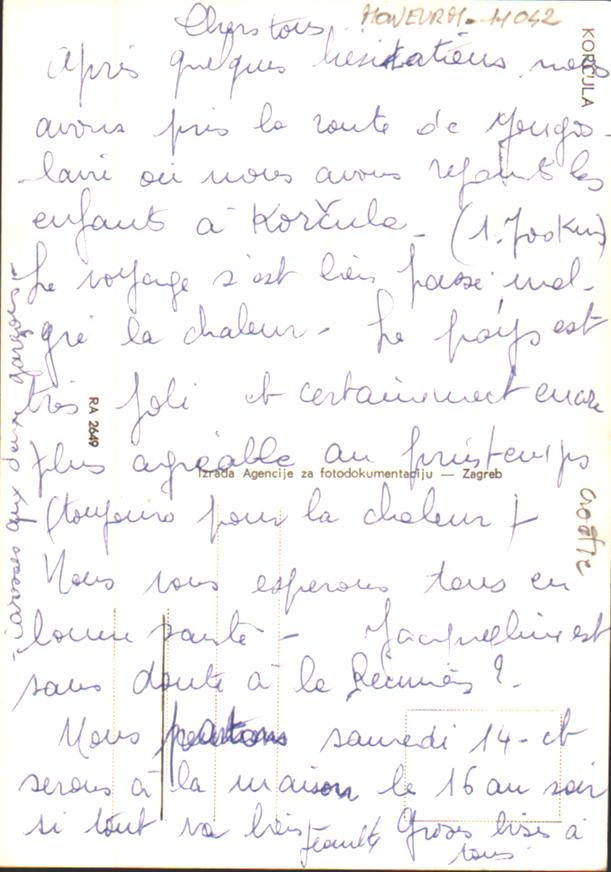 Chers tous
MONEVRM-11042
KORČULA
Après quelques hésitations nous
avons pris la route de Yougos-
lavie où nous avons rejoint les
enfants à Korčula - (1.
Le voyage s'est bien passé mal-
gré la chaleur - Le pays est
très joli et certainement encore
plus agréable au printemps
(toujours pour la chaleur)
Nous vous espérons tous en
bonne santé - Jacqueline est
sans doute à la Réunion ? -
Nous partons samedi 14 - et
serons à la maison le 16 au soir
si tout va bien Grosses bises à
tous
RA 2649
Izrada Agencije za fotodokumentaciju — Zagreb
Croatie